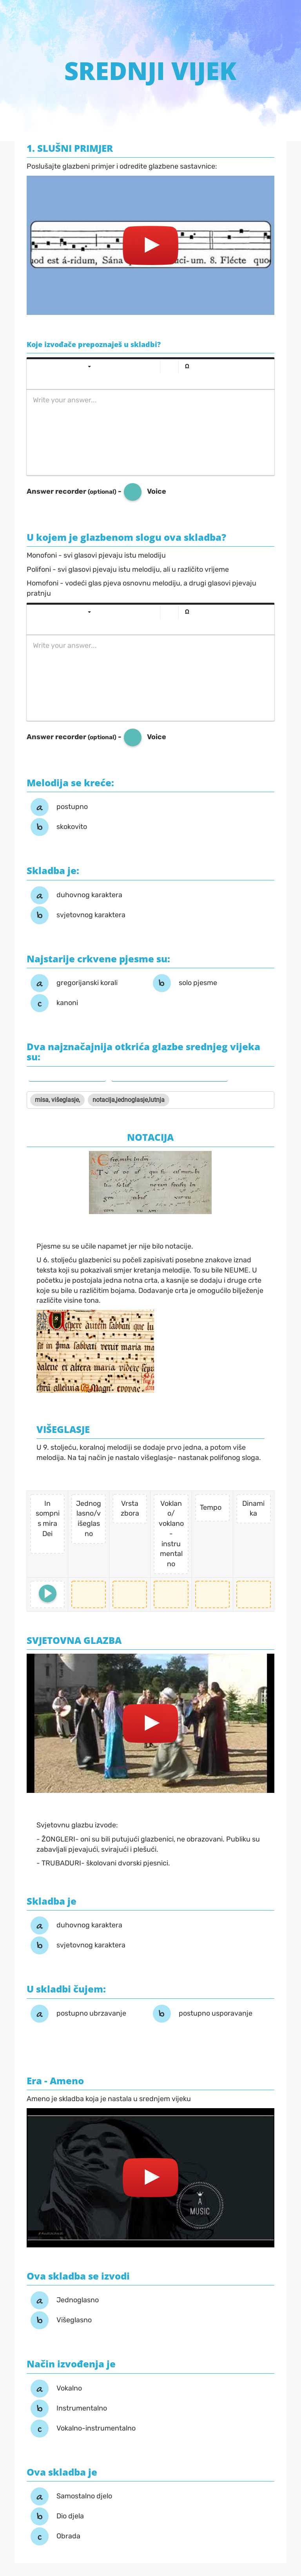 SREDNJI VIJEK
1. SLUŠNI PRIMJER
Poslušajte glazbeni primjer i odredite glazbene sastavnice:
od est á-ridum, Sána quod ci-um. 8. Flécte quo
Koje izvođače prepoznaješ u skladbi?
Ω
Write your answer...
Answer recorder (optional) - Voice
U kojem je glazbenom slogu ova skladba?
Monofoni - svi glasovi pjevaju istu melodiju
Polifoni - svi glasovi pjevaju istu melodiju, ali u različito vrijeme
Homofoni - vodeći glas pjeva osnovnu melodiju, a drugi glasovi pjevaju
pratnju
Ω
Write your answer...
Answer recorder (optional) - Voice
Melodija se kreće:
a postupno
b skokovito
Skladba je:
a duhovnog karaktera
b svjetovnog karaktera
Najstarije crkvene pjesme su:
a gregorijanski korali b solo pjesme
c kanoni
Dva najznačajnija otkrića glazbe srednjeg vijeka
su:
misa, višeglasje, notacija,jednoglasje,lutnja
NOTACIJA
Pjesme su se učile napamet jer nije bilo notacije.
U 6. stoljeću glazbenici su počeli zapisivati posebne znakove iznad
teksta koji su pokazivali smjer kretanja melodije. To su bile NEUME. U
početku je postojala jedna notna crta, a kasnije se dodaju i druge crte
koje su bile u različitim bojama. Dodavanje crta je omogućilo bilježenje
različite visine tona.
VIŠEGLASJE
U 9. stoljeću, koralnoj melodiji se dodaje prvo jedna, a potom više
melodija. Na taj način je nastalo višeglasje- nastanak polifonog sloga.
In
sompni
s mira
Dei
Jednog
lasno/v
išeglas
no
Vrsta
zbora
Voklan
o/
voklano
-
instru
mental
no
Tempo
Dinami
ka
SVJETOVNA GLAZBA
Svjetovnu glazbu izvode:
- ŽONGLERI- oni su bili putujući glazbenici, ne obrazovani. Publiku su
zabavljali pjevajući, svirajući i plešući.
- TRUBADURI- školovani dvorski pjesnici.
Skladba je
a duhovnog karaktera
b svjetovnog karaktera
U skladbi čujem:
a postupno ubrzavanje b postupno usporavanje
Era - Ameno
Ameno je skladba koja je nastala u srednjem vijeku
A
MUSIC
Ova skladba se izvodi
a Jednoglasno
b Višeglasno
Način izvođenja je
a Vokalno
b Instrumentalno
c Vokalno-instrumentalno
Ova skladba je
a Samostalno djelo
b Dio djela
c Obrada